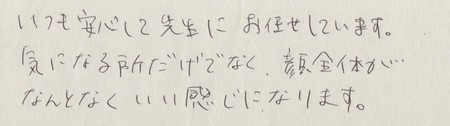 いつも安心して先生にお任せしています。
気になる所だけでなく、顔全体が…
なんとなくいい感じになります。